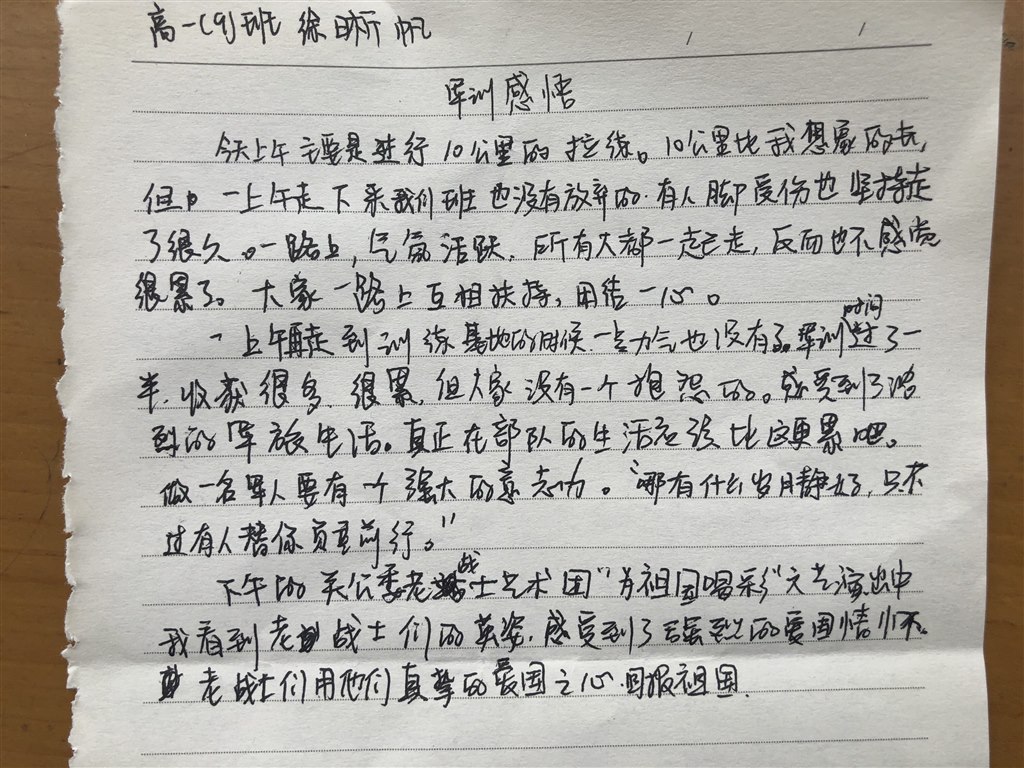 高一(9)班 徐晰帆
军训感悟
今天上午主要是进行10公里的拉练。10公里比我想象的长,
但 一上午走下来我们班也没有放弃的.有人脚受伤也坚持走
了很久。一路上,气氛活跃.所有人都一起走,反而也不感觉
很累了。大家一路上互相扶持,团结一心。
一上午再走到训练基地的时候一点力气也没有了.军训时间过了一
半.收获很多.很累.但大家没有一个抱怨的。感受到了浴
烈的军旅生活。真正在部队的生活应该比这更累吧。
做一名军人要有一个强大的意志力。“哪有什么岁月静好,只不
过有人替你负重前行。”
下午的关公委老战士艺术团“为祖国喝彩”文艺演出中
我看到老战士们的英姿.感受到了强烈的爱国情怀.
老战士们用他们真挚的爱国之心.回报祖国.